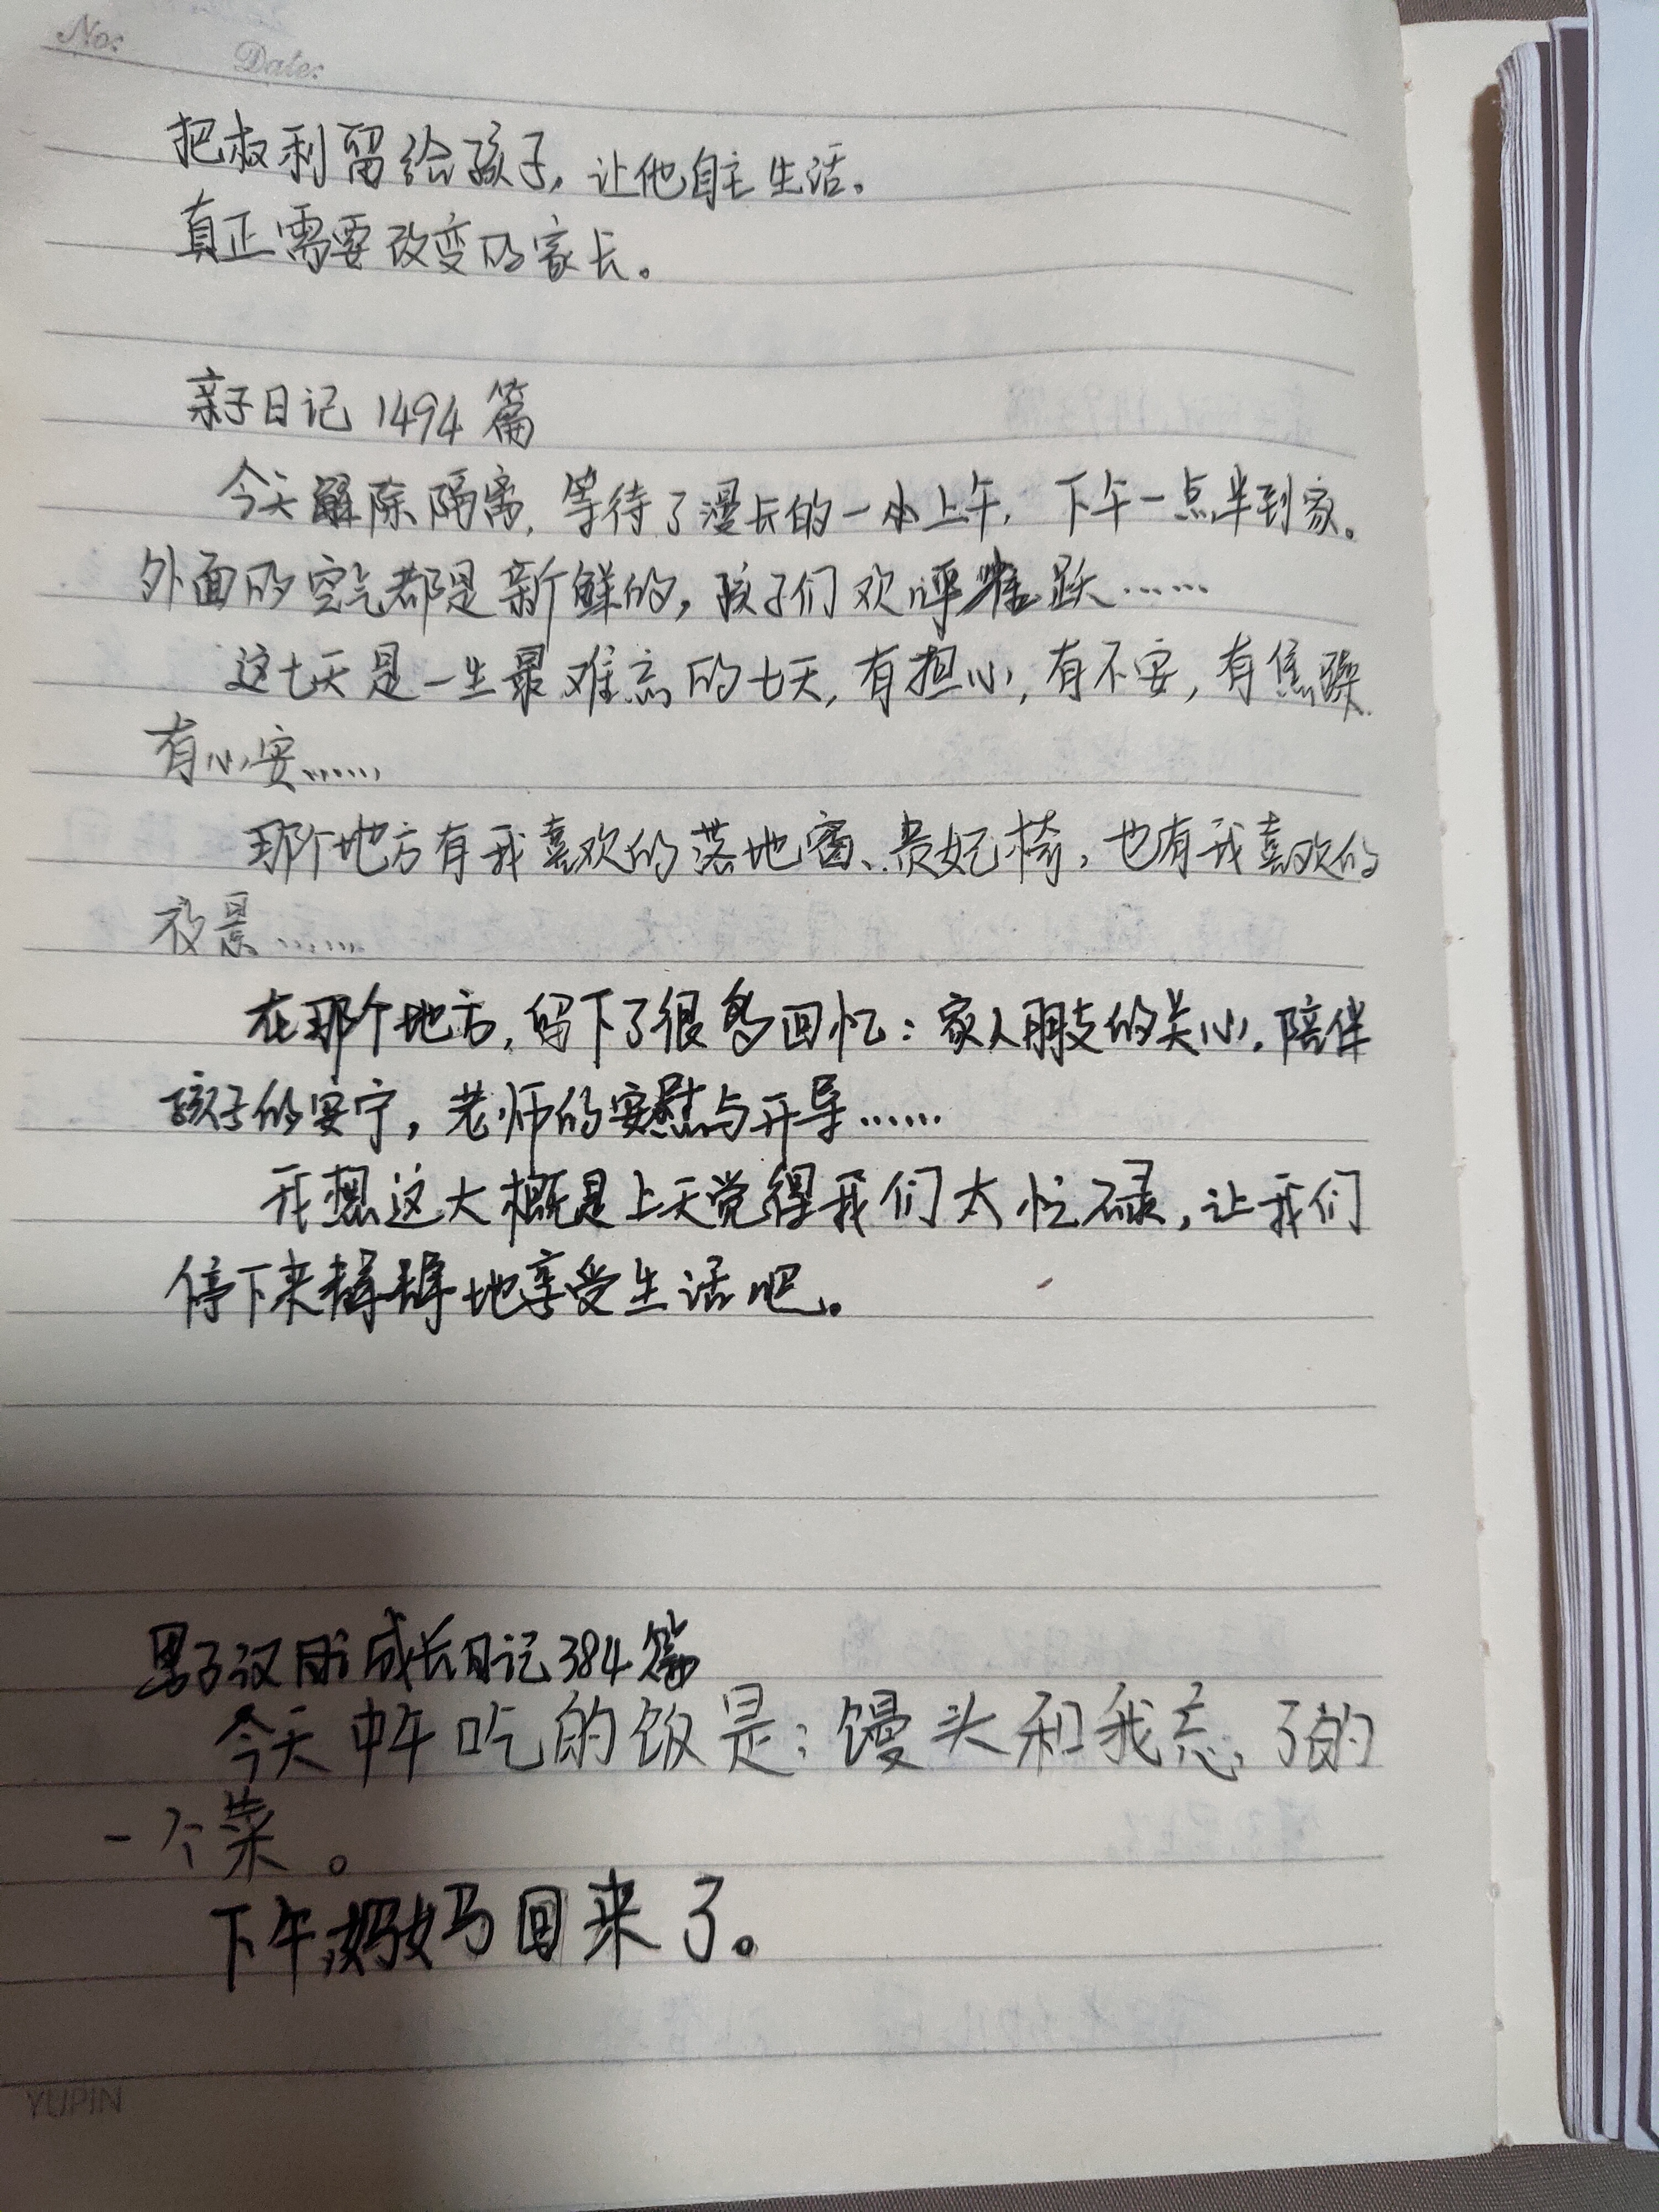 No:
Date:
把权利留给孩子，让他自主生活。
真正需要改变的家长。
亲子日记 1494 篇
今天解除隔离，等待了漫长的一小上午，下午一点半到家。
外面的空气都是新鲜的，孩子们欢呼雀跃……
这七天是一生最难忘的七天，有担心，有不安，有焦躁
有心安……
那个地方有我喜欢的落地窗、贵妃椅，也有我喜欢的
夜景……
在那个地方，留下了很多回忆：家人朋友的关心，陪伴
孩子的安宁，老师的安慰与开导……
我想这大概是上天觉得我们太忙碌，让我们
停下来静静地享受生活吧。
男子汉 成长日记 384 篇
今天中午吃的饭是：馒头和我忘了的
一个菜。
下午妈妈回来了。
YUPIN